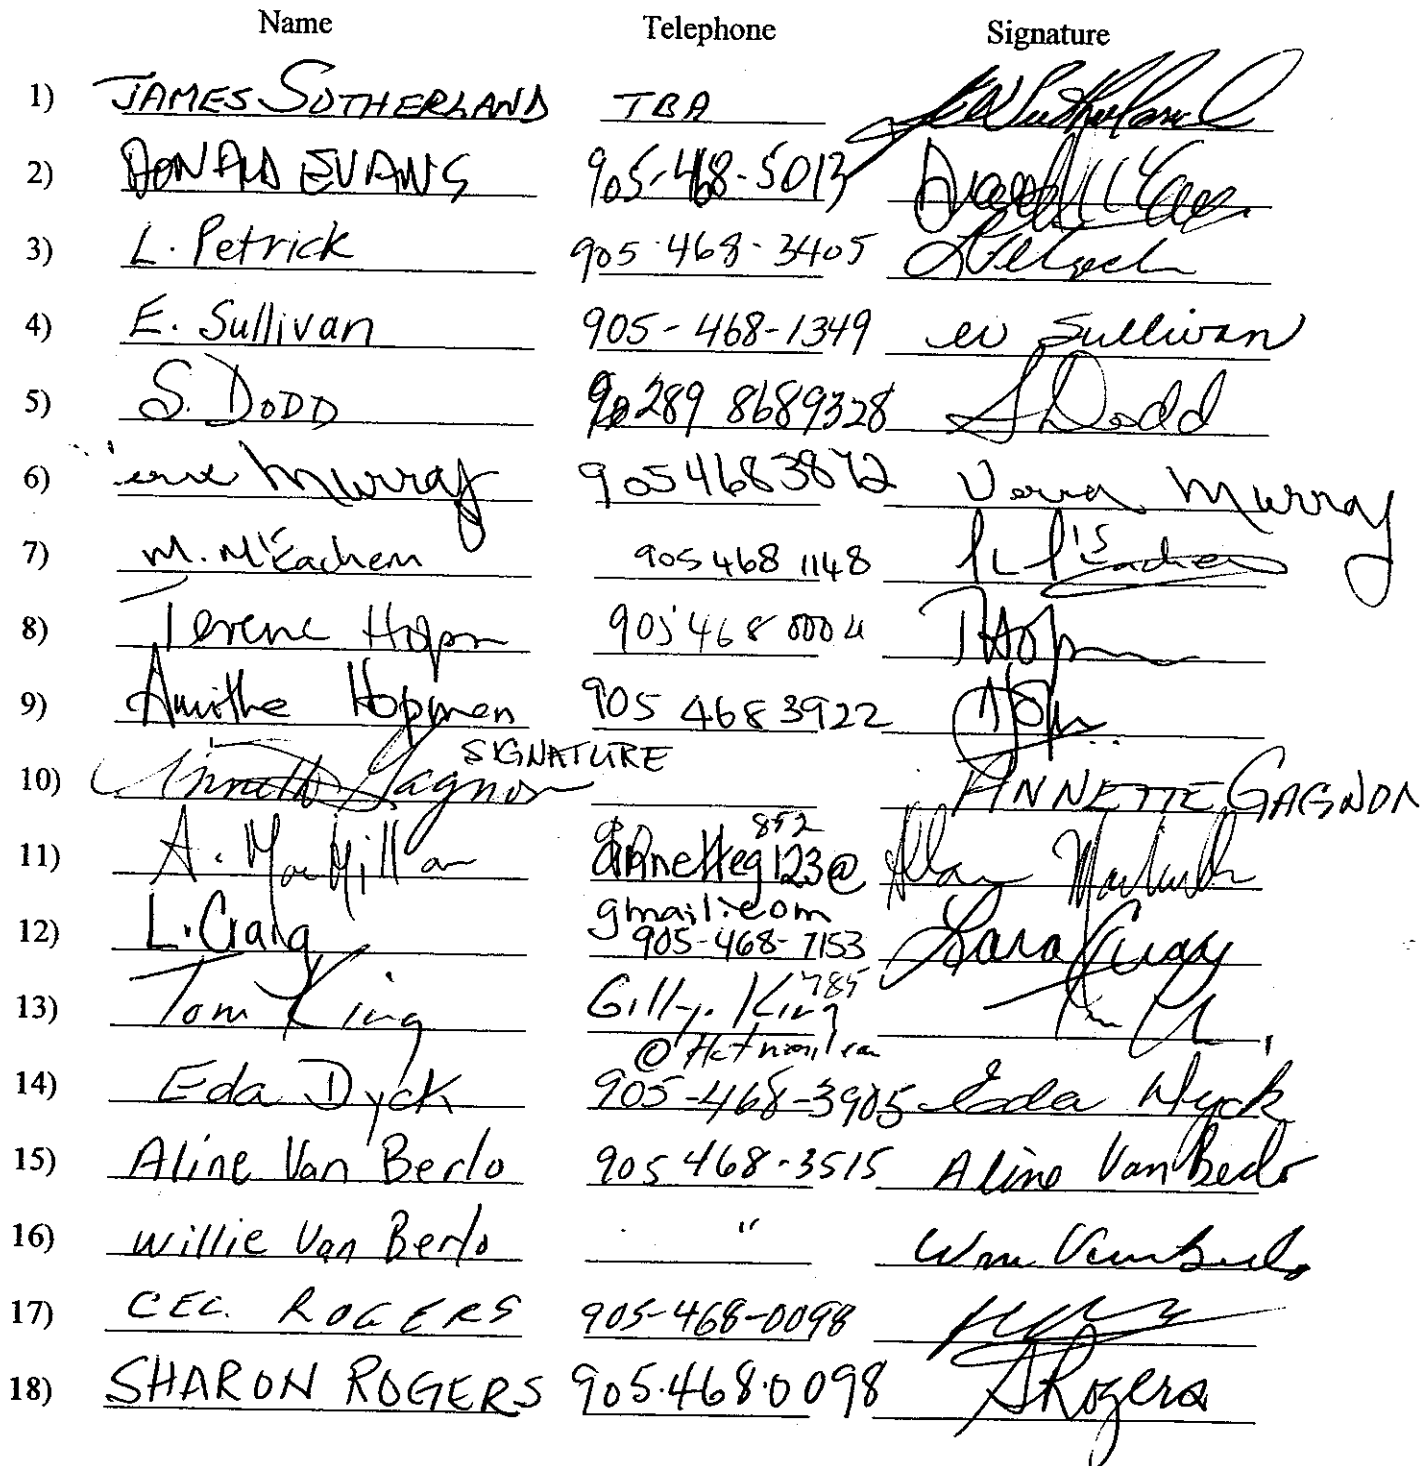 Name Telephone Signature
1) JAMES SUTHERLAND TBA
2) DONALD EVANS 905-468-5013
3) L. Petrick 905-468-3405 L Petrick
4) E. Sullivan 905-468-1349 ew Sullivan
5) S. DODD 289 8689328 S Dodd
6) Murray 905 468 3872 Verna Murray
7) M. McEachern 905 468 1148
8) Hopm 905 468 0004
9) Hopmen 905 468 3922
10) Annette Gagnon SIGNATURE ANNETTE GAGNON
11) A. MacMillan annetteg123@ Alan
852
gmail.com
12) L. Craig 905-468-7153 Lara Craig
13) Tom King Gilly. King 785
@Hotmail
14) Eda Dyck 905-468-3905 Eda Dyck
15) Aline Van Berlo 905 468-3515 Aline Van Berlo
16) Willie Van Berlo " Wm Van Berlo
17) CEC. ROGERS 905-468-0098
18) SHARON ROGERS 905.468.0098 S Rogers